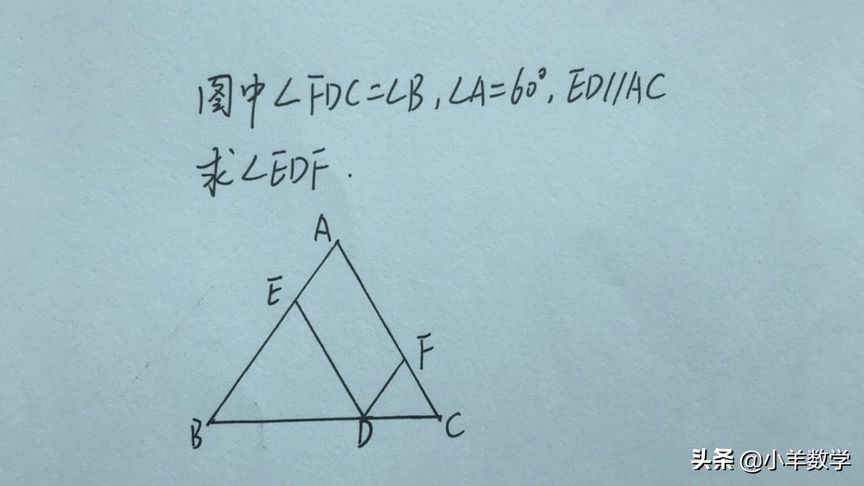 图中∠FDC=∠B,∠A=60°,ED//AC
求∠EDF.
A
E
F
B
D
C
头条 @小羊数学